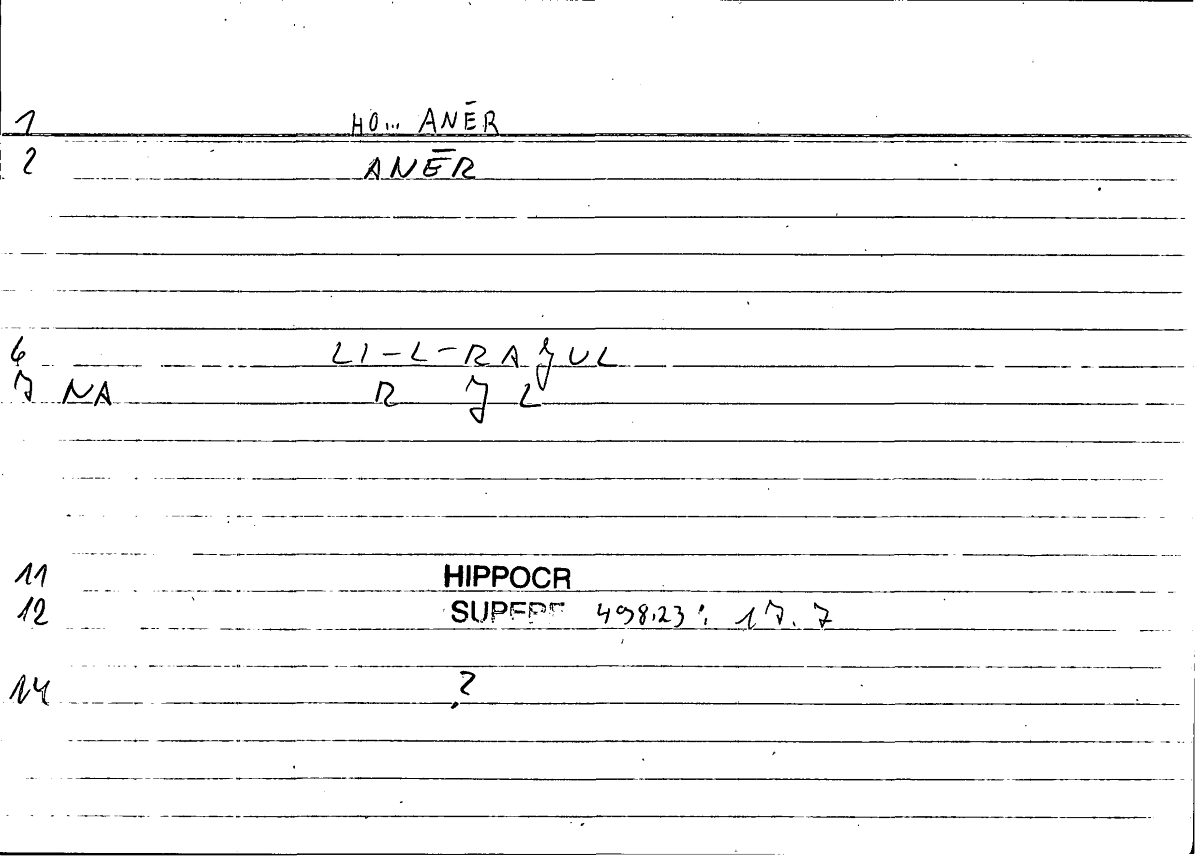 1 HO... ANĒR
2 ANĒR
6 LI-L-RAJUL
7 NA R J L
11 HIPPOCR
12 SUPERF 498,23 : 17.7
14 ?